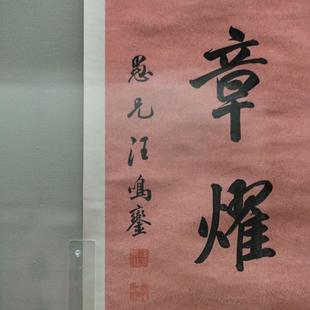 章燿
愚兄汪鳴鑾